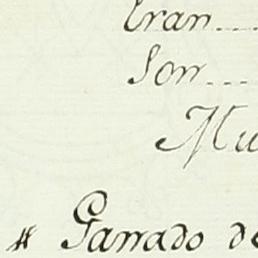 Eran....
Son....
Mu
Ganado de